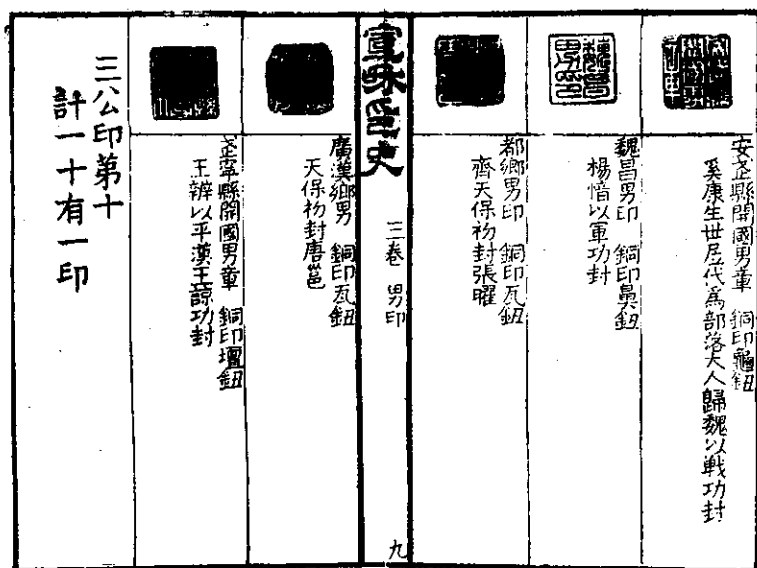 魏昌男印
安武縣開國男章　銅印龜鈕
奚康生世居代為部落大人歸魏以戰功封
魏昌男印　銅印鼻鈕
楊愔以軍功封
都鄉男印　銅印瓦鈕
齊天保初封張曜
宣和印史
三卷　男印
九
廣漢鄉男　銅印瓦鈕
天保初封唐邕
武寧縣開國男章　銅印壇鈕
王辨以平漢王諒功封
三公印第十
計一十有一印